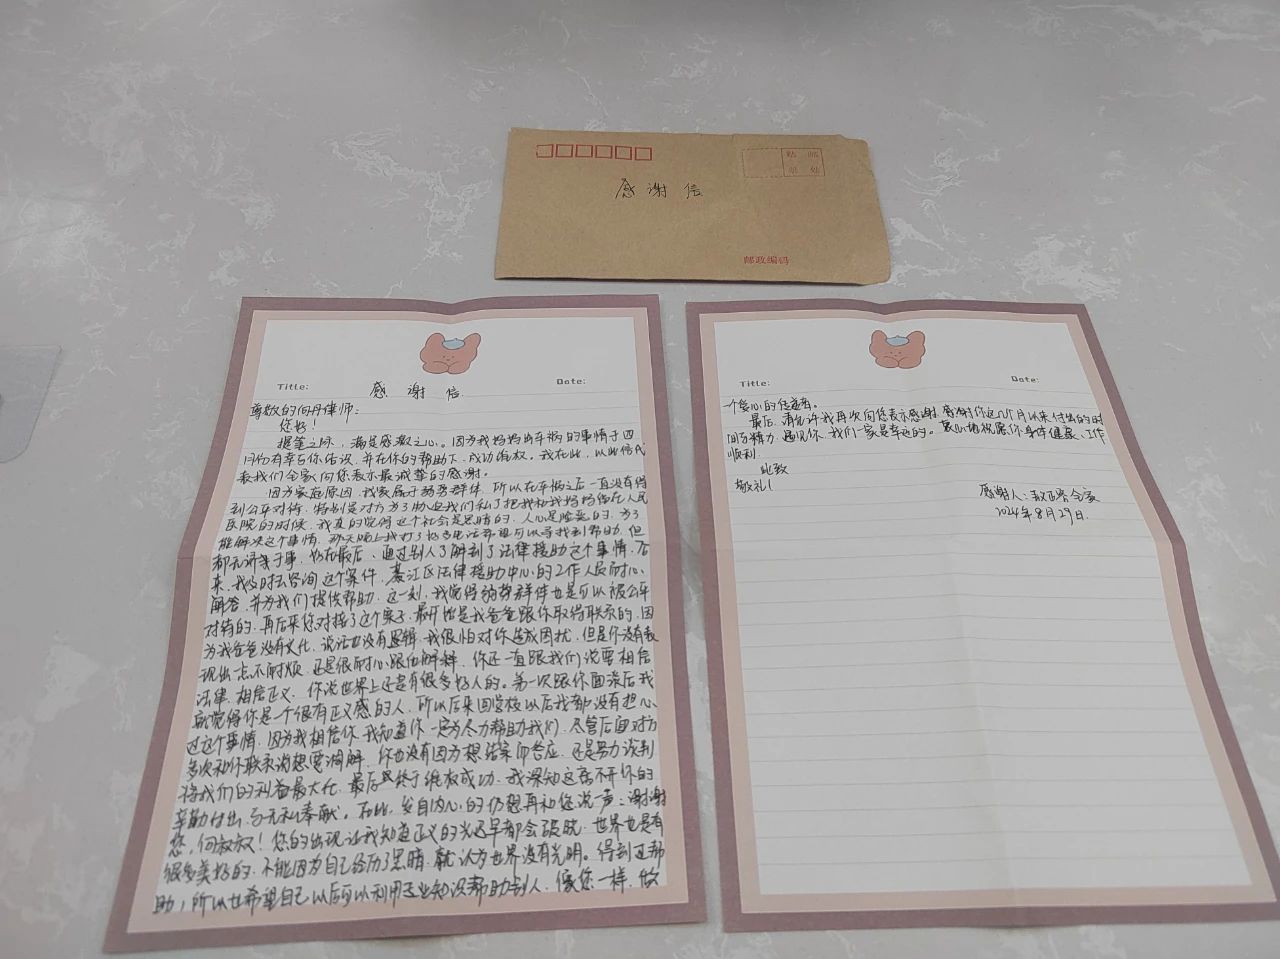 贴 邮
票 处
感谢信
邮政编码
Title: 感谢信 Date:
尊敬的何丹律师：
您好！
提笔之际，满是感激之心。因为我妈妈出车祸的事情于四
月份有幸与你结识，并在你的帮助下，成功维权。我在此，以此信代
表我们全家向您表示最诚挚的感谢。
因为家庭原因，我家属于弱势群体，所以在车祸之后一直没有得
到公平对待，特别是对方为了胁迫我们私了把我和我妈妈留在人民
医院的时候，我真的觉得这个社会是黑暗的，人心是险恶的，为了
能解决这个事情，那天晚上我打了好多电话希望可以寻找到帮助，但
都无济于事，仍在最后，通过别人了解到了法律援助这个事情，后
来，我及时去咨询这个案件，綦江区法律援助中心的工作人员耐心
解答，并为我们提供帮助，这一刻，我觉得弱势群体也是可以被公平
对待的，再后来您对接了这个案子，最开始是我爸爸跟你取得联系的，因
为我爸爸没有文化，说话也没有逻辑，我很怕对你造成困扰，但是你没有表
现出一点不耐烦，还是很耐心跟他解释，你还一直跟我们说要相信
法律，相信正义，你说世界上还是有很多好人的。第一次跟你面谈后我
就觉得你是一个很有正义感的人，所以后来回学校以后我都没有担心
过这个事情，因为我相信你，我知道你一定会尽力帮助我们，尽管后面对方
多次和你联系说想要调解，你也没有因为想结案而答应，还是努力谈判
将我们的利益最大化，最后终于维权成功，我深知这离不开你的
辛勤付出与无私奉献。在此，发自内心的仍想再和您说一声：谢谢
您，何叔叔！您的出现让我知道正义的光迟早都会破晓，世界也是有
很多美好的，不能因为自己经历了黑暗，就认为世界没有光明。得到过帮
助，所以也希望自己以后可以利用专业知识帮助别人，像您一样，做
Title: Date:
一个爱心的传递者。
最后，请允许我再次向您表示感谢，感谢你这几个月以来付出的时
间与精力，遇见你，我们一家是幸运的。衷心地祝愿你身体健康、工作
顺利
此致
敬礼！
感谢人： 全家
2024年8月29日.